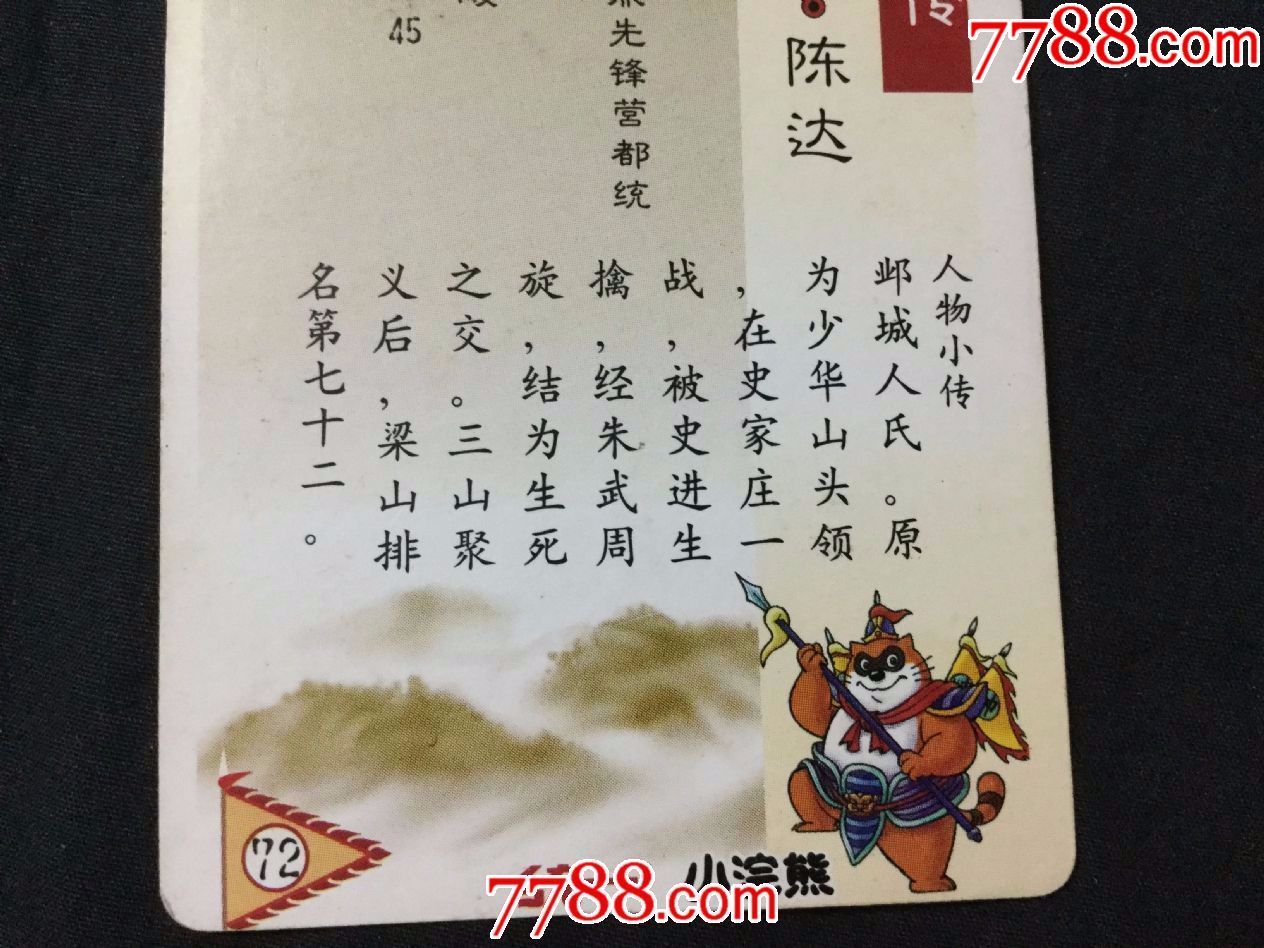 7788.com
传
陈达
先锋营都统
45
人物小传
邺城人氏。原
为少华山头领
，在史家庄一
战，被史进生
擒，经朱武周
旋，结为生死
之交。三山聚
义后，梁山排
名第七十二。
72
小浣熊
7788.com